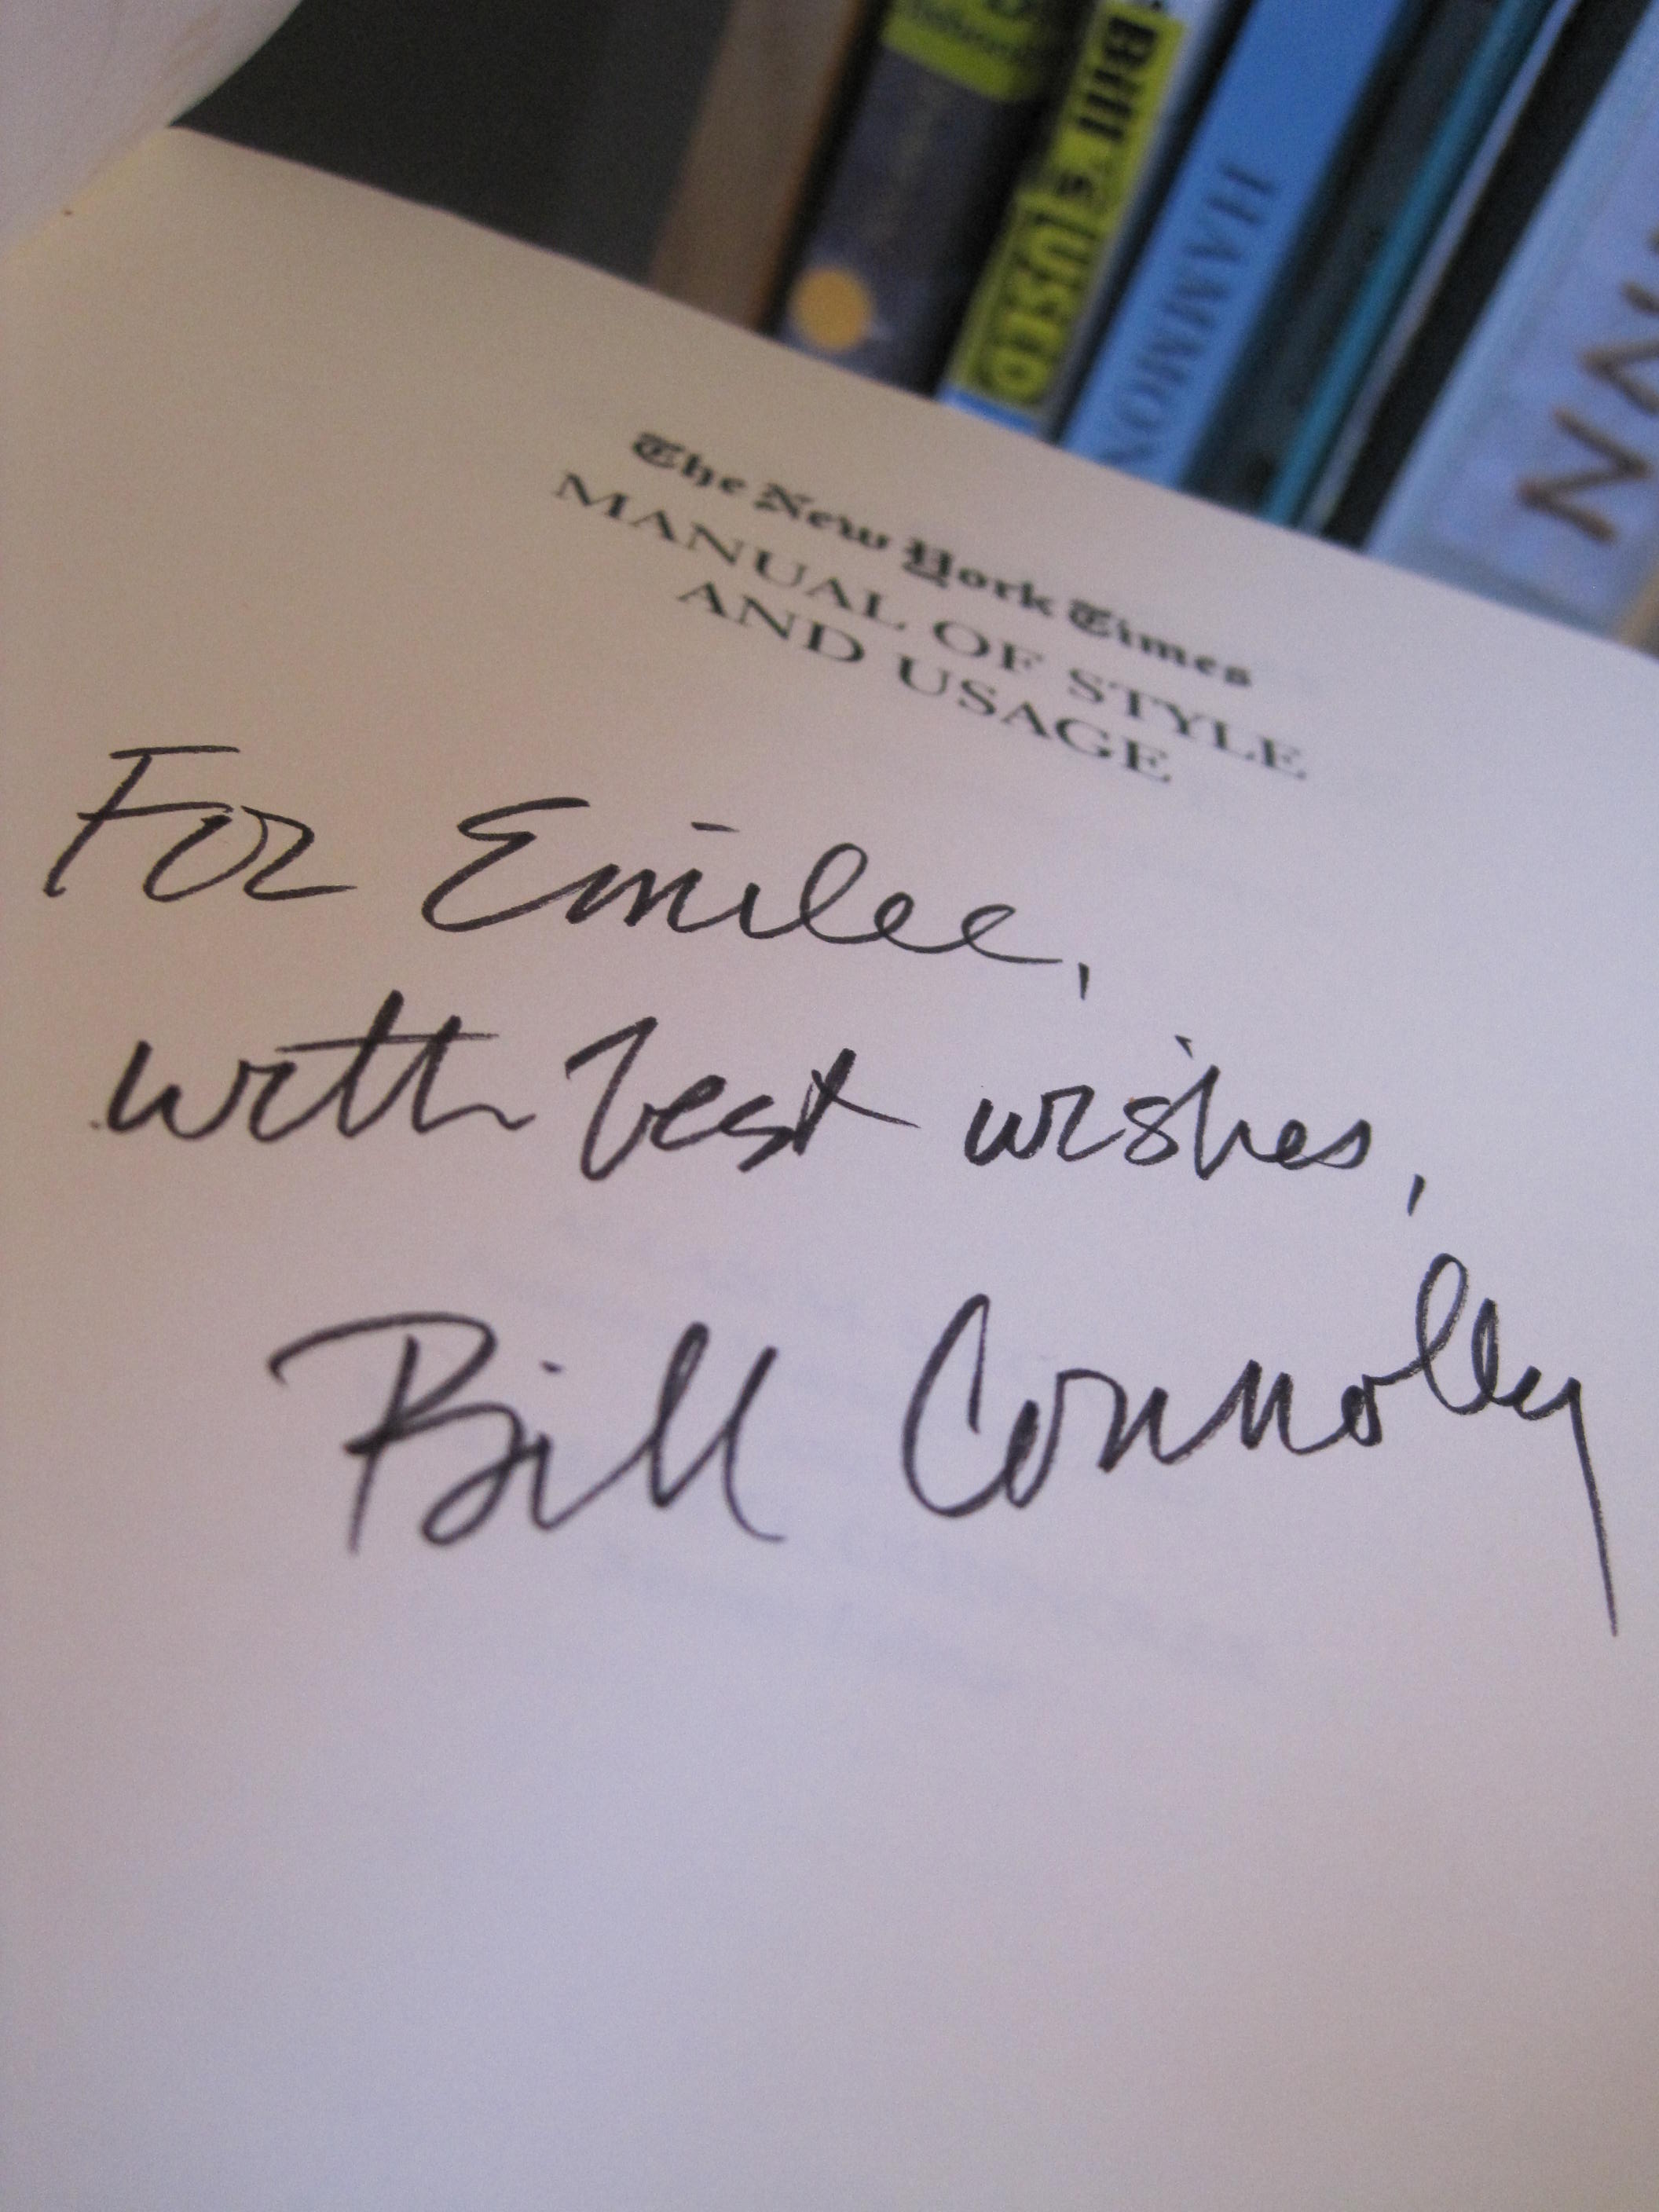 Bill's
USED
HAMMOND
The New York Times
MANUAL OF STYLE
AND USAGE
For Emilee,
with best wishes,
Bill Connolly